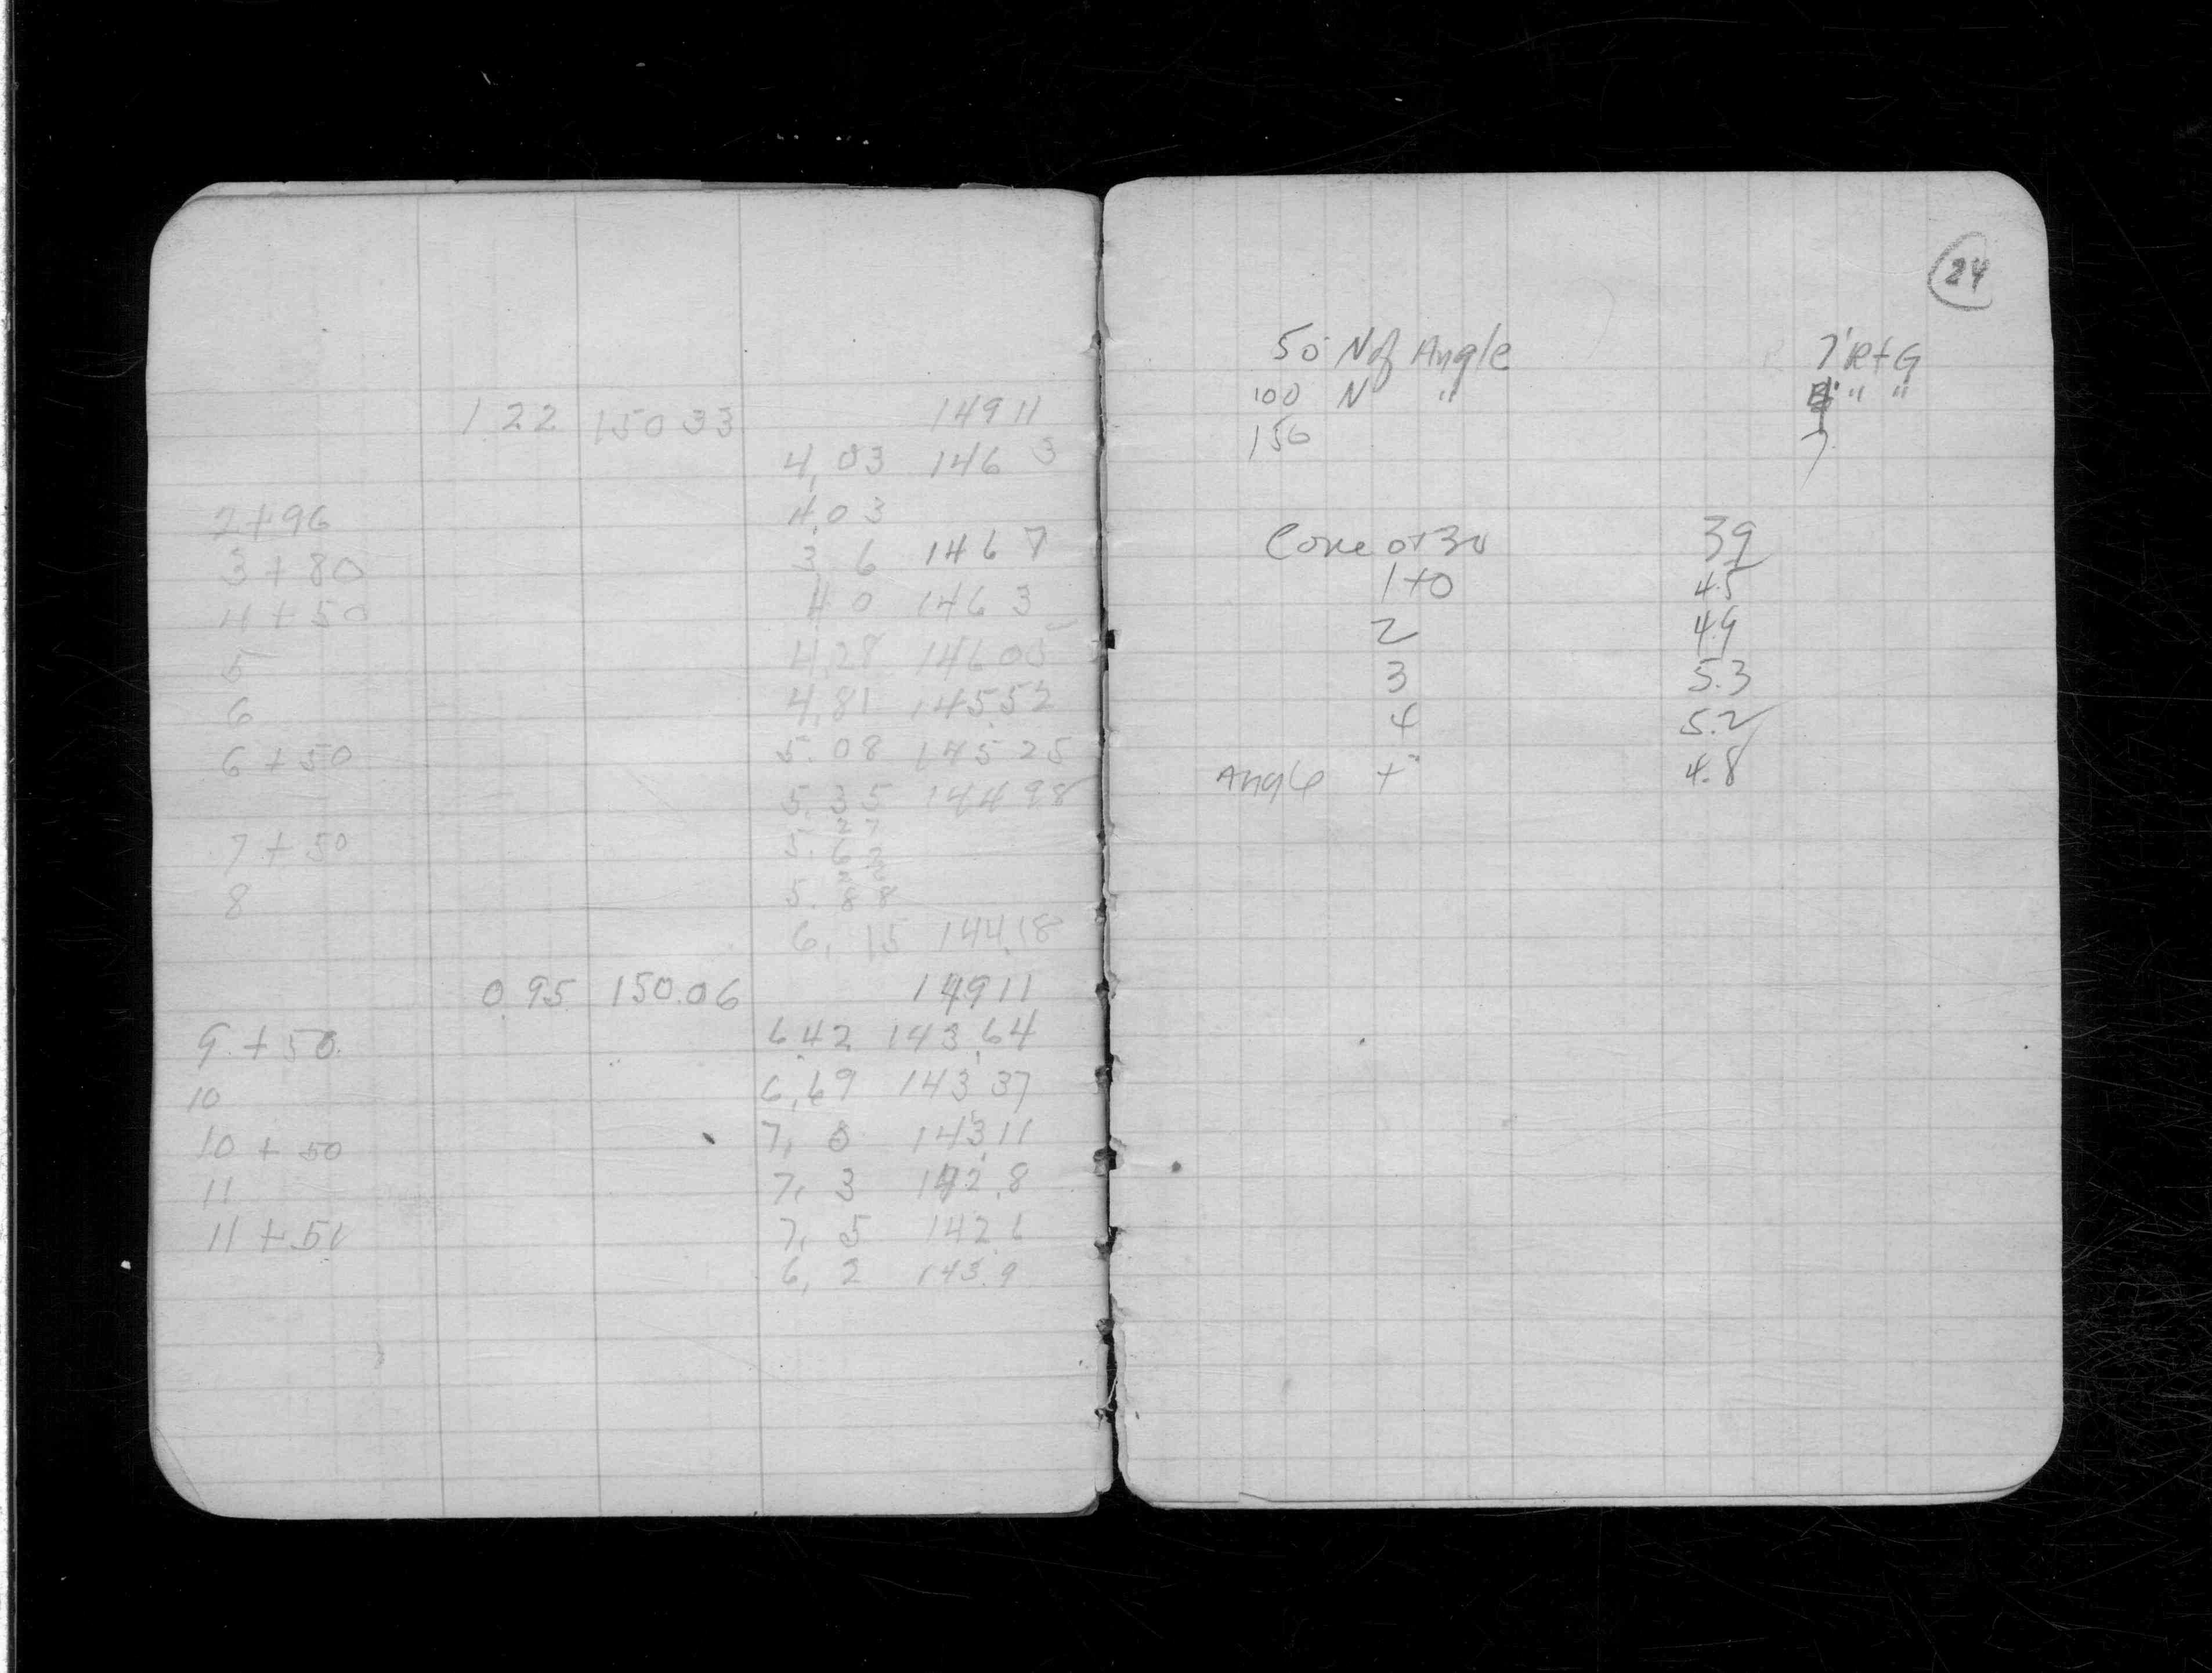 1.22 150 33 149 11
4,03 146 3
2+96 4.03
3+80 3 6 146 7
11+50 4 0 146 3
5 4.28 146 05
6 4.81 145.52
6+50 5.08 145 25
5.35 144 98
27
7+50 5. 62
26
8 5. 88
6, 15 144.18
0.95 150.06 149 11
9+50. 6.42 143.64
10 6,69 143 37
10+50 7, 0 143.11
11 7, 3 142.8
11+50 7, 5 142.6
6, 2 143.9
24
50 N of Angle 7' Rt G
100 N " " "
150 7
39
1+0 45
2 49
3 5.3
4 5.2
Angle + 4.8